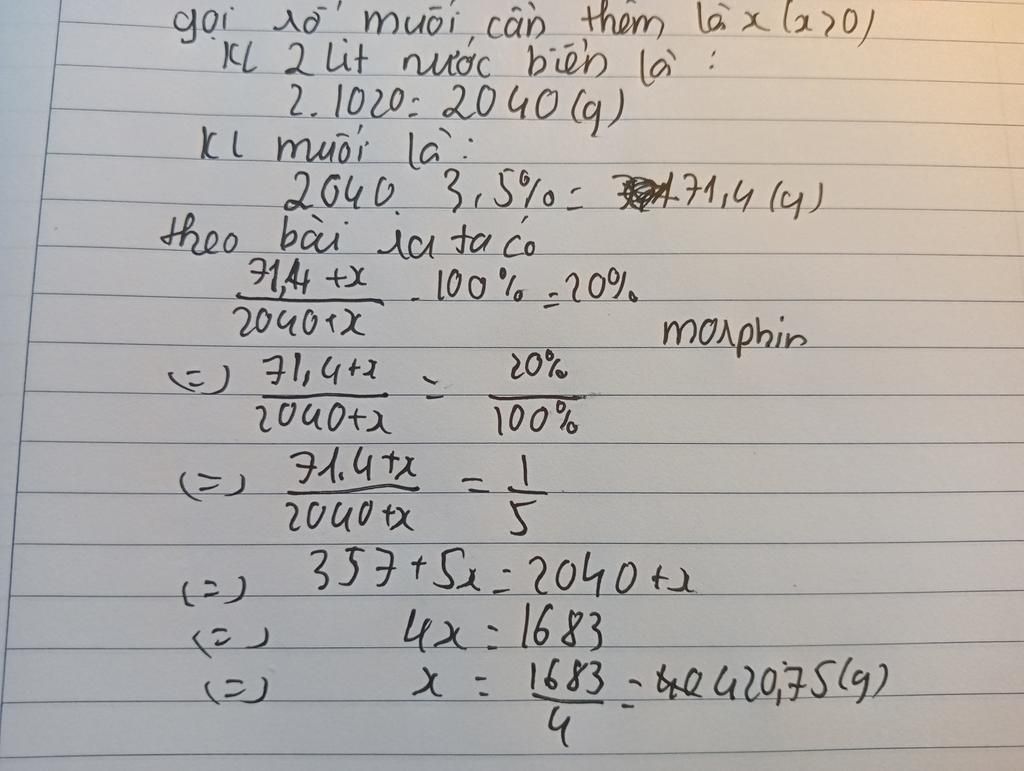 gọi số muối cần thêm là x (x>0)
KL 2 lit nước biển là :
2.1020= 2040 (g)
KL muối là :
2040. 3,5% = 71,4 (g)
theo bài ra ta có
71,4 +x / 2040+x . 100% = 20%
morphin
(=) 71,4+x / 2040+x = 20% / 100%
(=) 71.4+x / 2040+x = 1 / 5
(=) 357+5x = 2040+x
(=) 4x = 1683
(=) x = 1683 / 4 = 420,75(g)